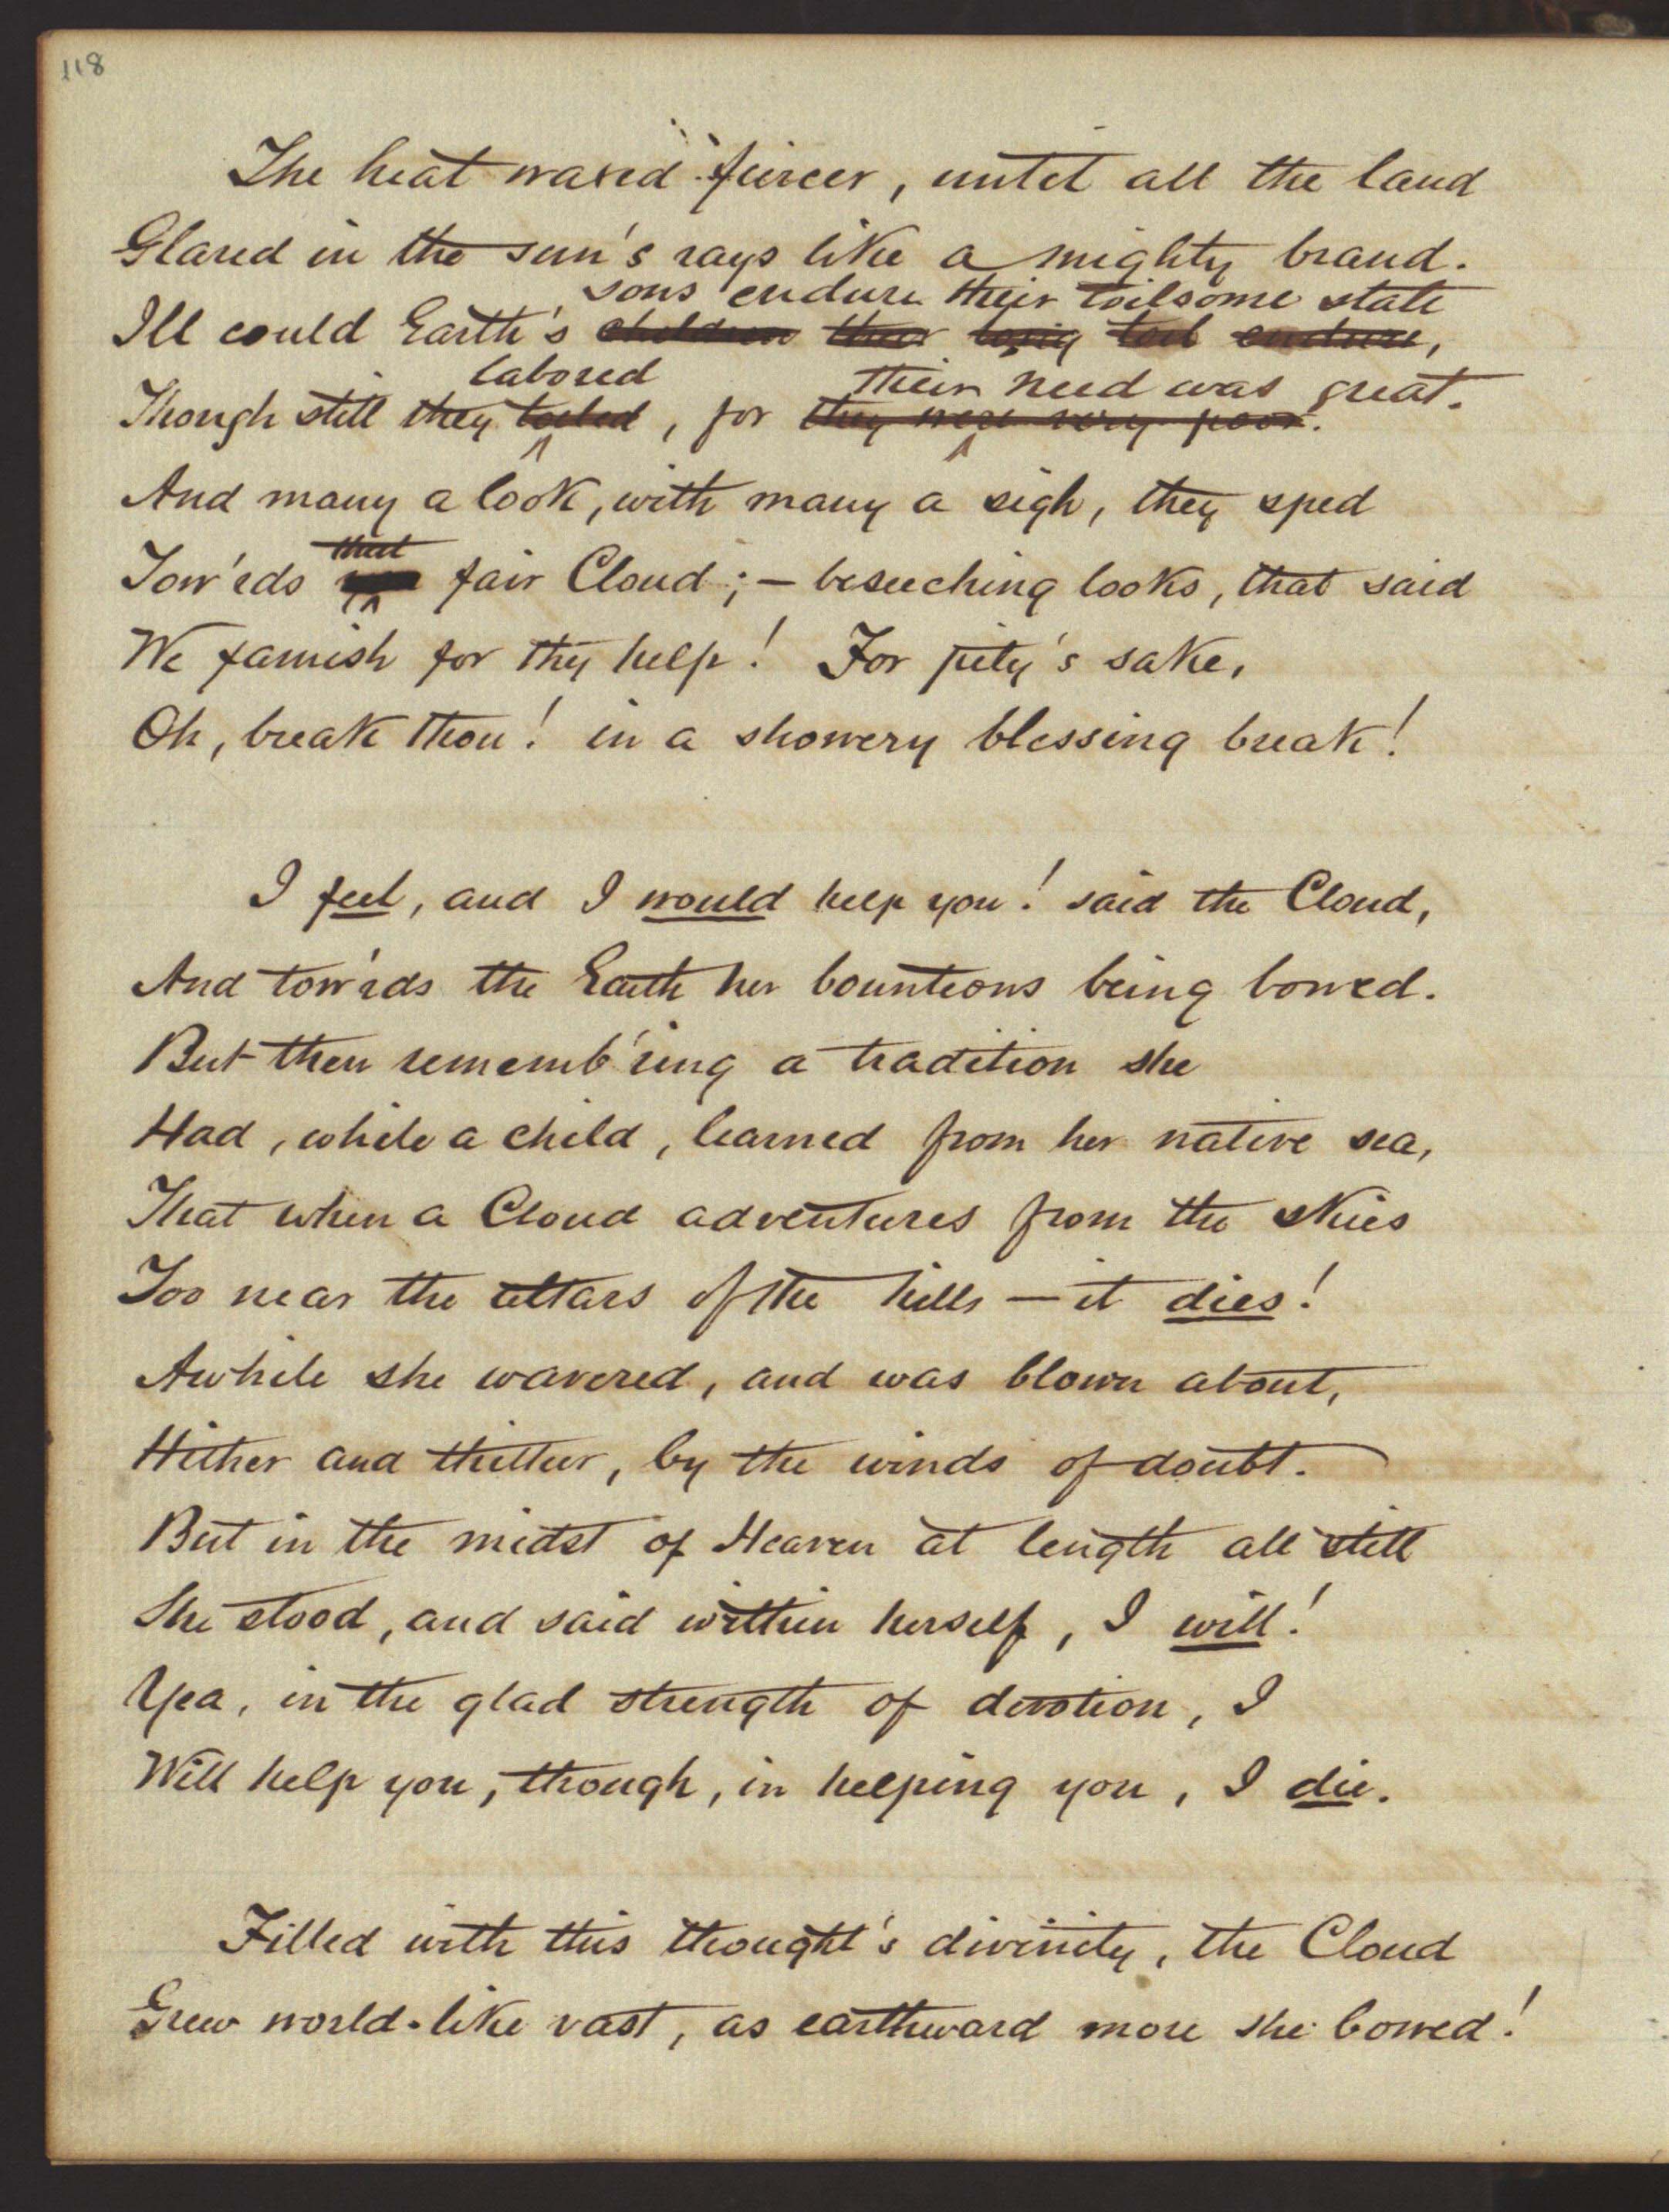 118
The heat waxed fiercer, until all the land
Glared in the sun's rays like a mighty brand.
sons endure their toilsome state
Ill could Earth's children their long toil endure,
labored their need was great.
Though still they toiled, for they were very poor.
And many a look, with many a sigh, they sped
that
Tow'rds fair Cloud; — beseeching looks, that said
We famish for thy help! For pity's sake,
Oh, break thou! in a showery blessing break!
I feel, and I would help you! said the Cloud,
And tow'rds the Earth her bounteous being bowed.
But then rememb'ring a tradition she
Had, while a child, learned from her native sea,
That when a Cloud adventures from the skies
Too near the altars of the hills — it dies!
Awhile she wavered, and was blown about,
Hither and thither, by the winds of doubt.
But in the midst of Heaven at length all still
She stood, and said within herself, I will!
Yea, in the glad strength of devotion, I
Will help you, though, in helping you, I die.
Filled with this thought's divinity, the Cloud
Grew world-like vast, as earthward more she bowed!